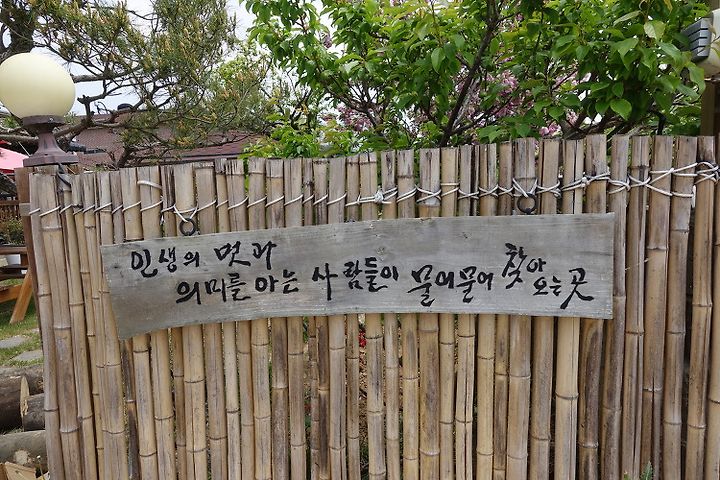 인생의 멋과
의미를 아는 사람들이 물어물어 찾아
오는 곳